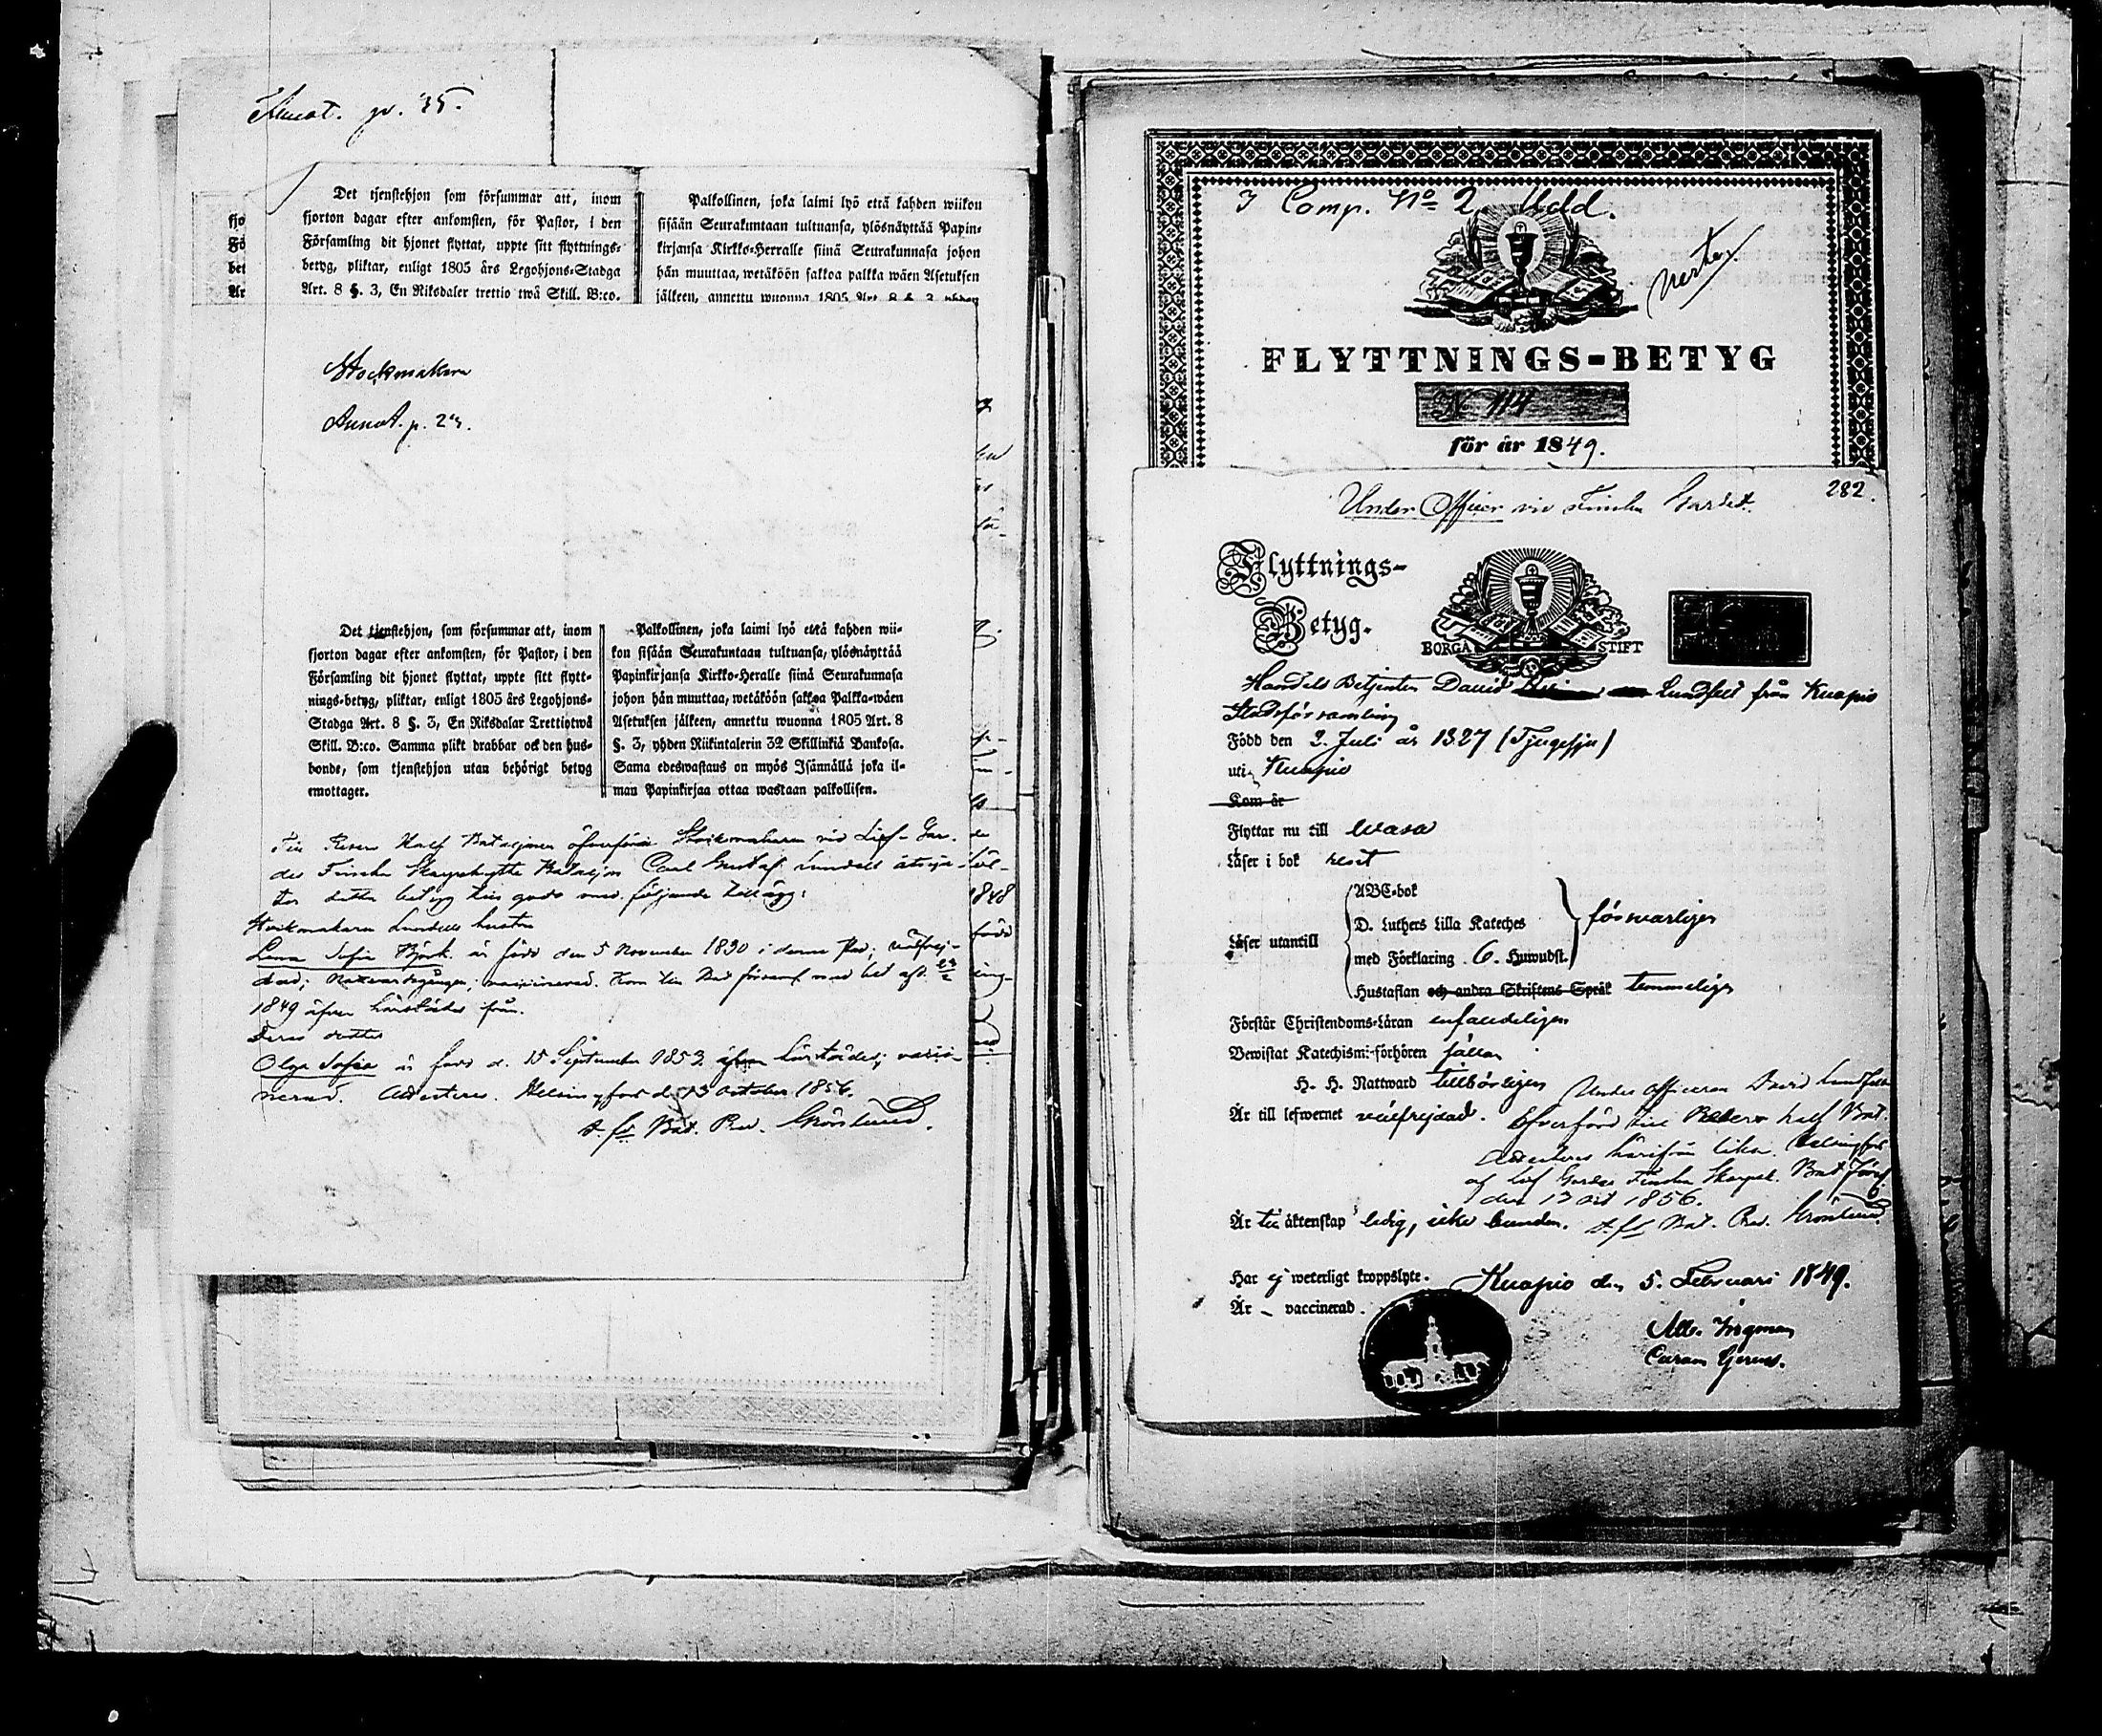 Annot. p. 35.
fjo
Fö
bet
Är
Det tjenstehjon som försummar att, inom
fjorton dagar efter ankomsten, för Pastor, i den
Församling dit hjonet flyttat, uppte sitt flyttnings-
betyg, pliktar, enligt 1805 års Legohjons-Stadga
Art. 8 §. 3, En Riksdaler trettio twå Skill. B:co.
Palkollinen, joka laimi lyö että kahden wiikon
sisään Seurakuntaan tultuansa, ylösnäyttää Papin-
kirjansa Kirkko-Herralle siinä Seurakunnasa johon
hän muuttaa, wetäköön sakkoa palkka wäen Asetuksen
jälkeen, annettu wuonna 1805 Art. 8 §. 3 yhden
Stockmakare
Annot. p. 23.
Det tjenstehjon, som försummar att, inom
fjorton dagar efter ankomsten, för Pastor, i den
Församling dit hjonet flyttat, uppte sitt flytt-
nings-betyg, pliktar, enligt 1805 års Legohjons-
Stadga Art. 8 §. 3, En Riksdalar Trettiotwå
Skill. B:co. Samma plikt drabbar ock den hus-
bonde, som tjenstehjon utan behörigt betyg
emottager.
Palkollinen, joka laimi lyö että kahden wii-
kon sisään Seurakuntaan tultuansa, ylösnäyttää
Papinkirjansa Kirkko-Heralle siinä Seurakunnasa
johon hän muuttaa, wetäköön sakkoa Palkka-wäen
Asetuksen jälkeen, annettu wuonna 1805 Art. 8
§. 3, yhden Riikintalerin 32 Skillinkiä Bankosa.
Sama edeswastaus on myös Isännällä joka il-
man Papinkirjaa ottaa wastaan palkollisen.
Till Reserv Half Bataljonen öfverförde Stockmakaren vid Lif-Gar-
des Finska Skarpskytte Bataljon Carl Gustaf Lundell åtnju-
ter detta betyg till godo med följande tillägg:
Stockmakaren Lundells hustru
Lena Sofia Björk är född den 5 November 1830 i denna stad; välfrej-
dad; Nattvardsgången; vaccinerad. Kom till Bat. församl. med bet. afg.
1849 äfven härstädes från.
Deras dotter
Olga Sofia är född d. 15 September 1853 äfven härstädes; vacci-
nerad. Attesteras. Helsingfors d. 13 October 1856.
t. f. Bat. Pred. Grönlund.
1848
född
I Comp. No 2. Udd.
FLYTTNINGS-BETYG
N 114
för år 1849.
282.
Under Officer vid Finska Gardet.
Flyttnings-
Betyg.
BORGÅ STIFT
Handels Betjenten David Lundfelt från Kuopio
Stadsförsamling
Född den 2. Juli år 1827 (Tjugesju)
uti Kuopio
Kom år
Flyttar nu till Wasa
Läser i bok redt
Läser utantill
ABC-bok
D. Luthers Lilla Kateches
med Förklaring. 6. Huwudst.
försvarligen
Hustaflan och andra Skriftens Språk temmeligen
Förstår Christendoms-Läran enfaldeligen
Bewistat Katechismi-förhören sällan
H. H. Nattward tillbörligen
Är till lefwernet välfrejdad.
Under Officeren David Lundfelt
Öfverförd till Reserv half Bat.
Attesteras härifrån likn. Helsingfors
af Lif Gardes Finska Skarpsk. Bat. Förs.
den 13 Oct 1856.
t. f. Bat. Pred. Grönlund.
Är till äktenskap ledig, icke bunden.
Har ej weterligt kroppslyte.
Kuopio den 5. Februari 1849.
Är – vaccinerad.